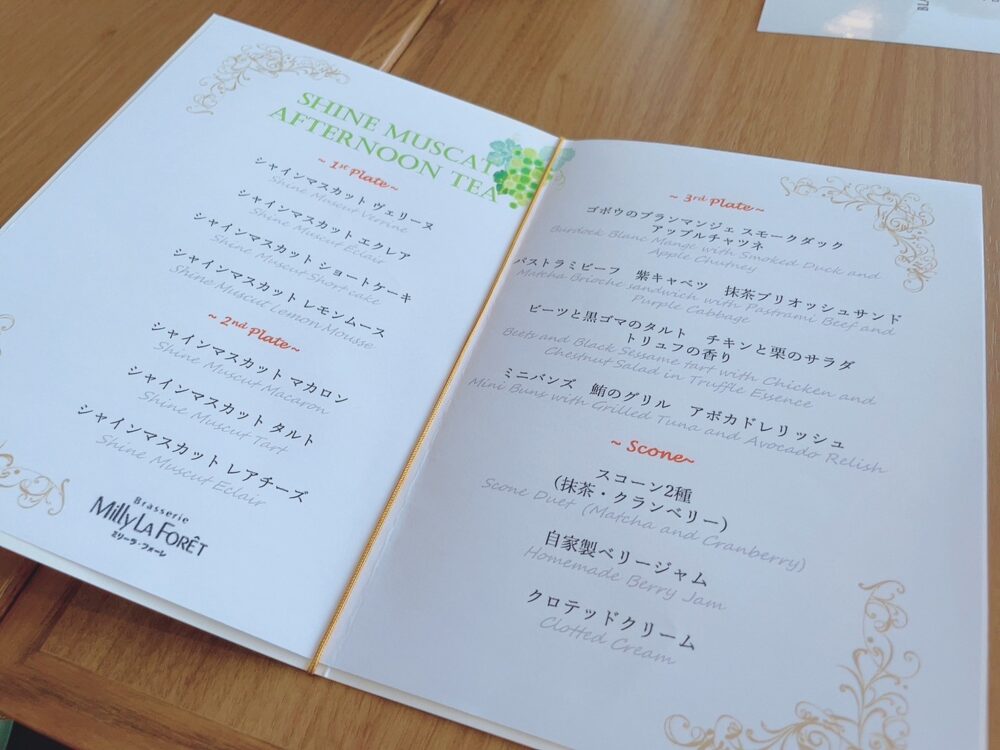 SHINE MUSCAT
AFTERNOON TEA
~ 1st Plate~
シャインマスカット ヴェリーヌ
Shine Muscut Verrine
シャインマスカット エクレア
Shine Muscut Eclair
シャインマスカット ショートケーキ
Shine Muscut Shortcake
シャインマスカット レモンムース
Shine Muscut Lemon Mousse
~ 2nd Plate~
シャインマスカット マカロン
Shine Muscut Macaron
シャインマスカット タルト
Shine Muscut Tart
シャインマスカット レアチーズ
Shine Muscut Eclair
Brasserie
Milly LA FORÊT
ミリーラ・フォーレ
~ 3rd Plate~
ゴボウのブランマンジェ スモークダック
アップルチャツネ
Burdock Blanc Mange with Smoked Duck and
Apple Chutney
パストラミビーフ 紫キャベツ 抹茶ブリオッシュサンド
Matcha Brioche sandwich with Pastrami Beef and
Purple Cabbage
ビーツと黒ゴマのタルト チキンと栗のサラダ
トリュフの香り
Beets and Black Sessame tart with Chicken and
Chestnut Salad in Truffle Essence
ミニバンズ 鮪のグリル アボカドレリッシュ
Mini Buns with Grilled Tuna and Avocado Relish
~ Scone~
スコーン2種
(抹茶・クランベリー)
Scone Duet (Matcha and Cranberry)
自家製ベリージャム
Homemade Berry Jam
クロテッドクリーム
Clotted Cream